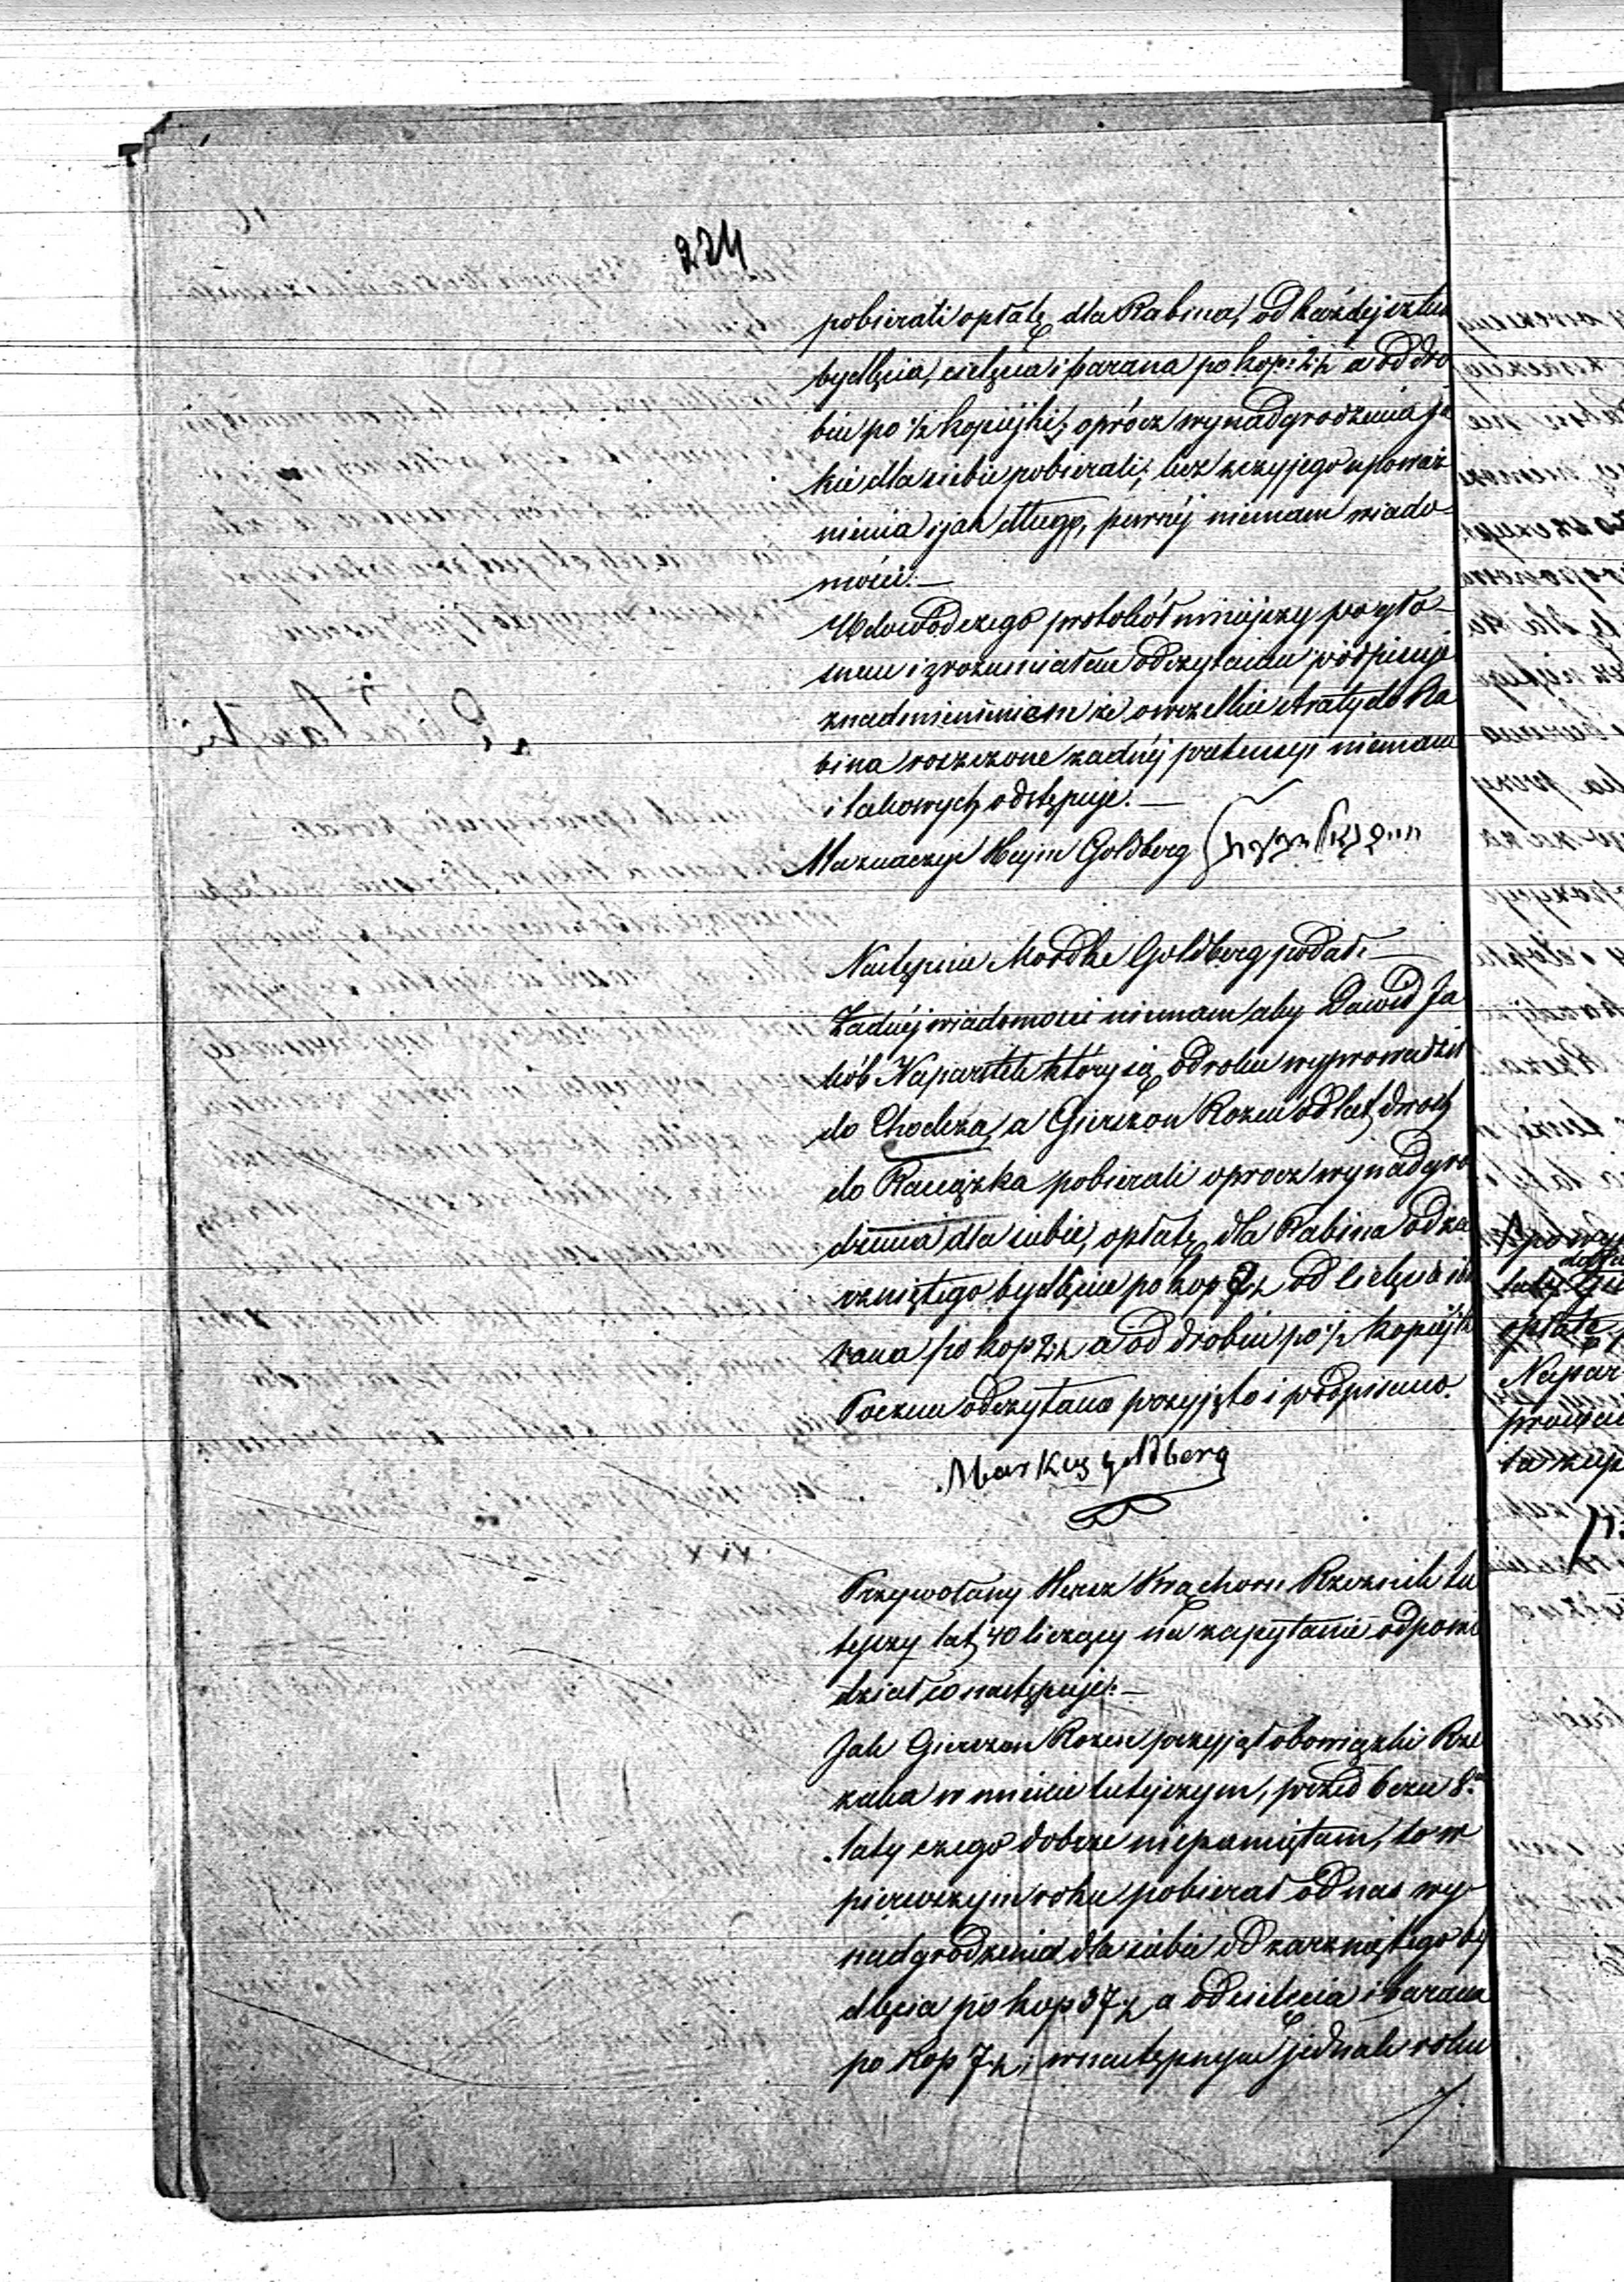 224
pobierali opłatę dla Rabina, od każdej sztuk
bydlęcia, cielęcia i barana po kop: 2½ a od dro
biu po ½ kopiejki, oprócz wynadgrodzenia ja
kie dla siebie pobierali, lecz z czyjego upoważ
nienia i jak długo, pewnéj niemam wiado-
mości.—
W dowód czego protokół niniejszy po gło-
snem i zrozumiałem odczytaniu podpisuję
z nadmienieniem że o wszelkie straty do Ra
bina roszczone żadnéj pretensyi niemam
i takowych odstępuję.—
Maznaczyc Haim Goldberg
Następnie Mordke Goldberg podał:—
Żadnéj wiadomości niemam aby Dawid Ja
kób Naparstek który się od roku wyprowadził
do Chodcza, a Gierszon Rozen od lat dwóch
do Raciążka pobierali oprocz wynadgro
dzenia dla siebie, opłatę dla Rabina od za
rzniętego bydlęcia po kop 7½ od cielęcia i ba
rana po kop 2½ a od drobiu po ½ kopiejki
Poczem odczytano przyjęto i podpisano.
Markus Goldberg
Przywołany Hersz Krachom Rzeznik tu
tejszy lat 40 liczący na zapytanie odpowie
dział co następuje:—
Jak Gierszon Rozen przyjął obowiązki Rze
zaka w mieście tutejszym, przed 6 czu 8
laty czego dobrze niepamiętam, to w
pierwszym roku pobierał od nas wy
nadgrodzenia dla siebie od zarzniętego by
dlęcia po kop 37½ a od cielęcia i barana
po kop 7½, w następnym jednak roku